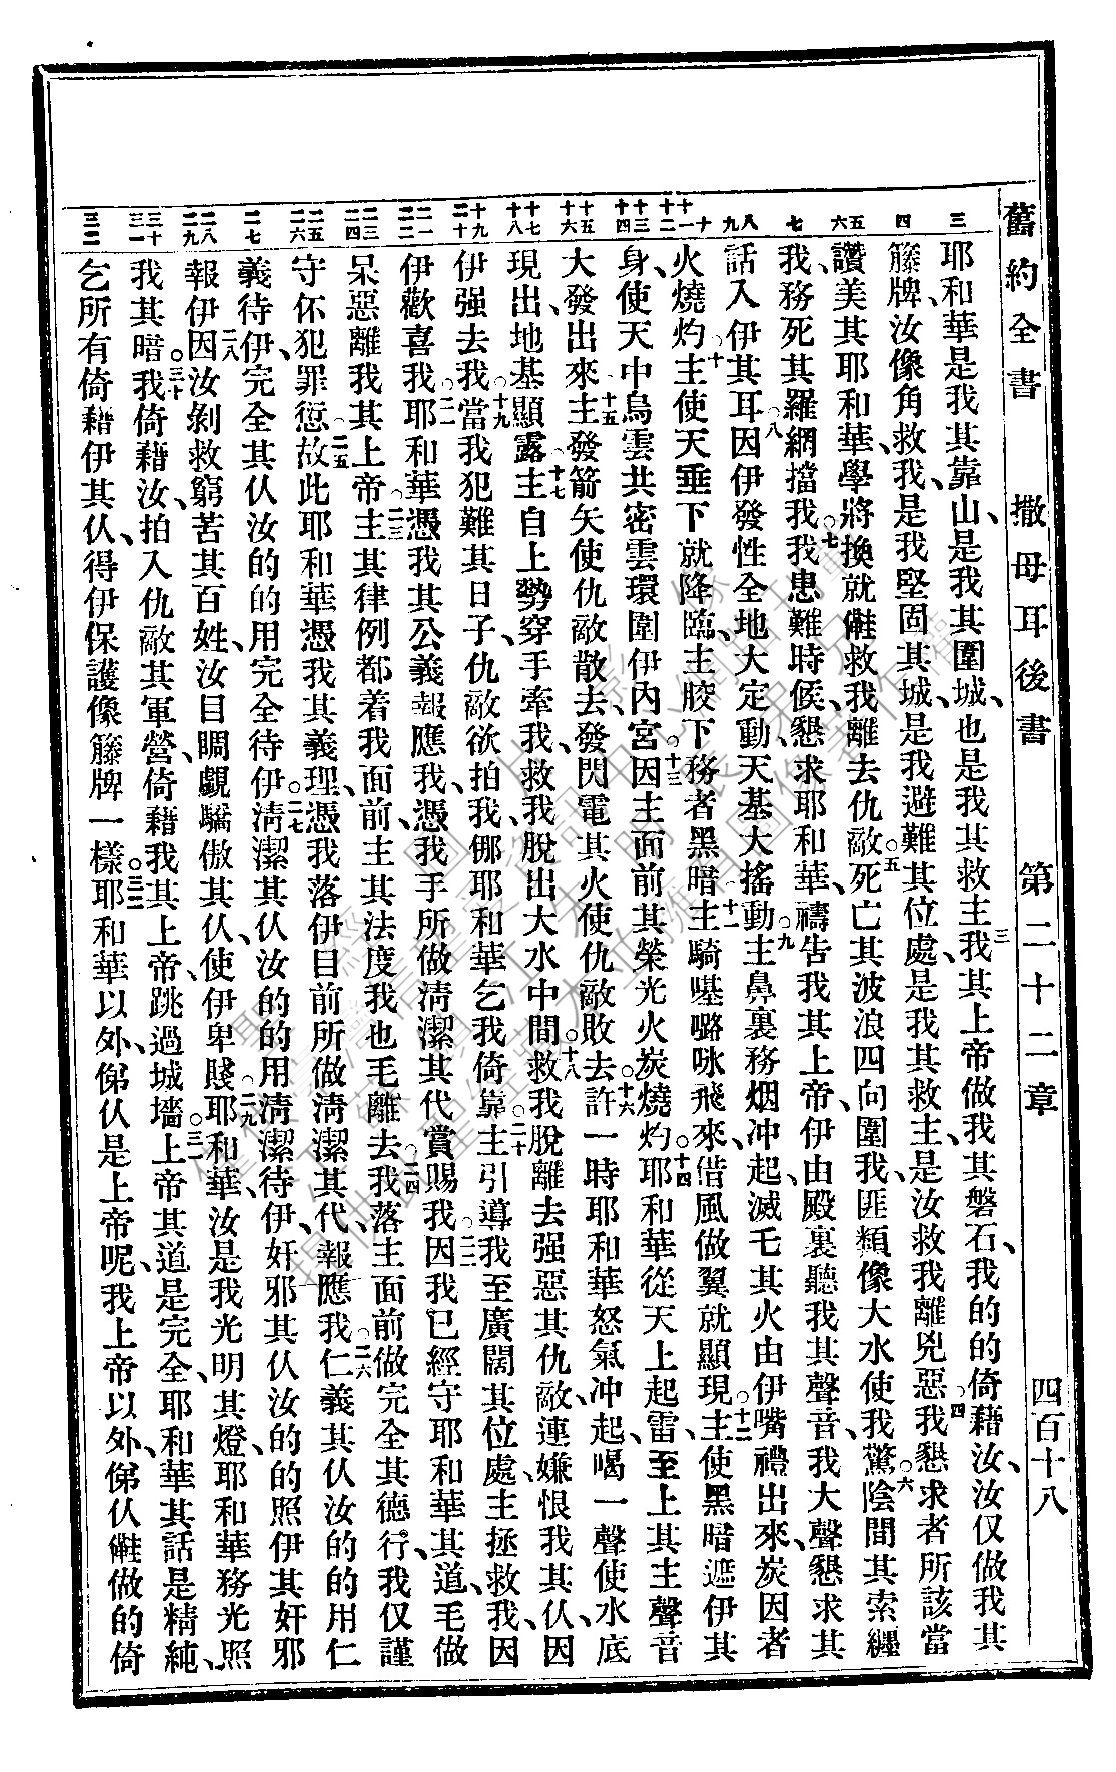 舊約全書 撒母耳後書 第二十二章 四百十八
三 四 五 六 七 八 九 十 十一 十二 十三 十四 十五 十六 十七 十八 十九 二十 二一 二二 二三 二四 二五 二六 二七 二八 二九 三十 三一 三二
耶和華是我其靠山、是我其圍城、也是我其救主、三我其上帝做我其磐石、我的的倚藉汝、汝仅做我其
籐牌、汝像角救我、是我堅固其城、是我避難其位處、是我其救主、是汝救我離兇惡、○四我懇求者所該當
讚美其耶和華、學將換就㑚救我離去仇敵、○五死亡其波浪四向圍我、匪類像大水使我驚、○六陰間其索纏
我、務死其羅網擋我、○七我患難時候、懇求耶和華、禱告我其上帝、伊由殿裏聽我其聲音、我大聲懇求其
話入伊其耳、○八因伊發性、全地大定動、天基大搖動、○九主鼻裏務烟冲起、滅乇其火由伊嘴禮出來、炭因者
火燒灼、○十主使天垂下就降臨、主骹下務者黑暗、十一主騎𠸄嚕㕸飛來、借風做翼就顯現、○十二主使黑暗遮伊其
身、使天中烏雲共密雲環圍伊內宮、○十三因主面前其榮光火炭燒灼、○十四耶和華從天上起雷、至上其主聲音
大發出來、十五主發箭矢使仇敵散去、發閃電其火使仇敵敗去、○十六許一時耶和華怒氣冲起、喝一聲使水底
現出、地基顯露、○十七主自上勢穿手牽我、救我脫出大水中間、○十八救我脫離去强惡其仇敵、連嫌恨我其仅、因
伊强去我、○十九當我犯難其日子、仇敵欲拍我、㑚耶和華乞我倚靠、○二十主引導我至廣闊其位處、主拯救我、因
伊歡喜我、○二一耶和華憑我其公義報應我、憑我手所做清潔其代賞賜我、○二二因我已經守耶和華其道、毛做
呆惡離我其上帝、○二三主其律例都着我面前、主其法度我也毛離去、○二四我落主面前做完全其德行、我仅謹
守伓犯罪愆、○二五故此耶和華憑我其義理、憑我落伊目前所做清潔其代、報應我、○二六仁義其仅汝的的用仁
義待伊、完全其仅汝的的用完全待伊、○二七清潔其仅、汝的的用清潔待伊、奸邪其仅汝的的照伊其奸邪
報伊、二八因汝剝救窮苦其百姓、汝目瞷覷驕傲其仅、使伊卑賤、○二九耶和華、汝是我光明其燈、耶和華務光照
我其暗、○三十我倚藉汝、拍入仇敵其軍營、倚藉我其上帝、跳過城墻、○三一上帝其道是完全、耶和華其話是精純、
乞所有倚藉伊其仅、得伊保護像籐牌一樣、○三二耶和華以外、俤仅是上帝呢、我上帝以外、俤仅㑚做的倚